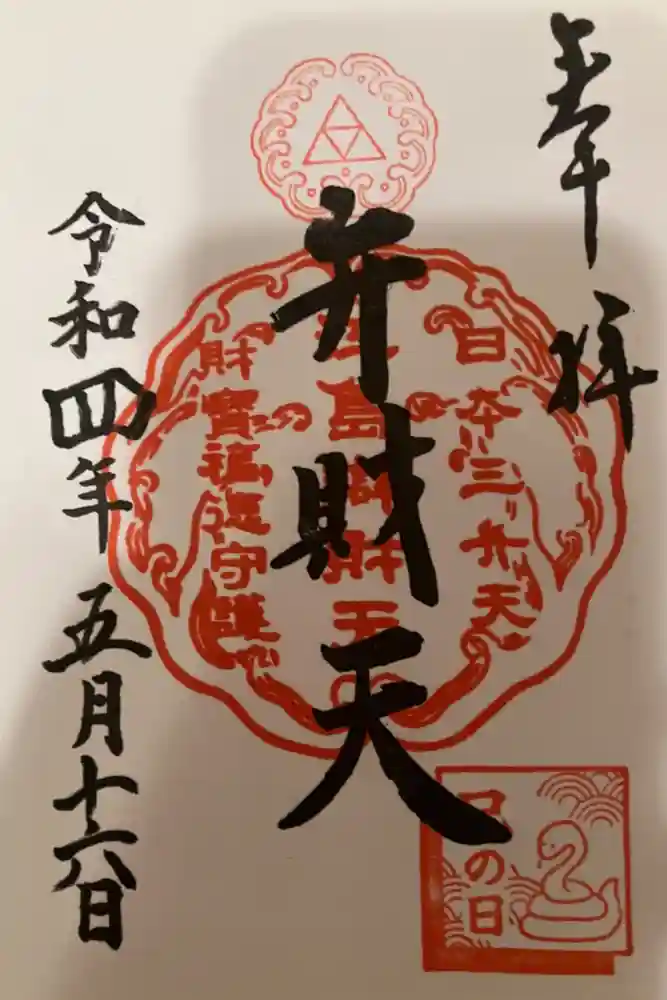 奉拝
日本三弁天
江島辨財天
財寶福徳守護
弁財天
令和四年五月十六日
巳の日